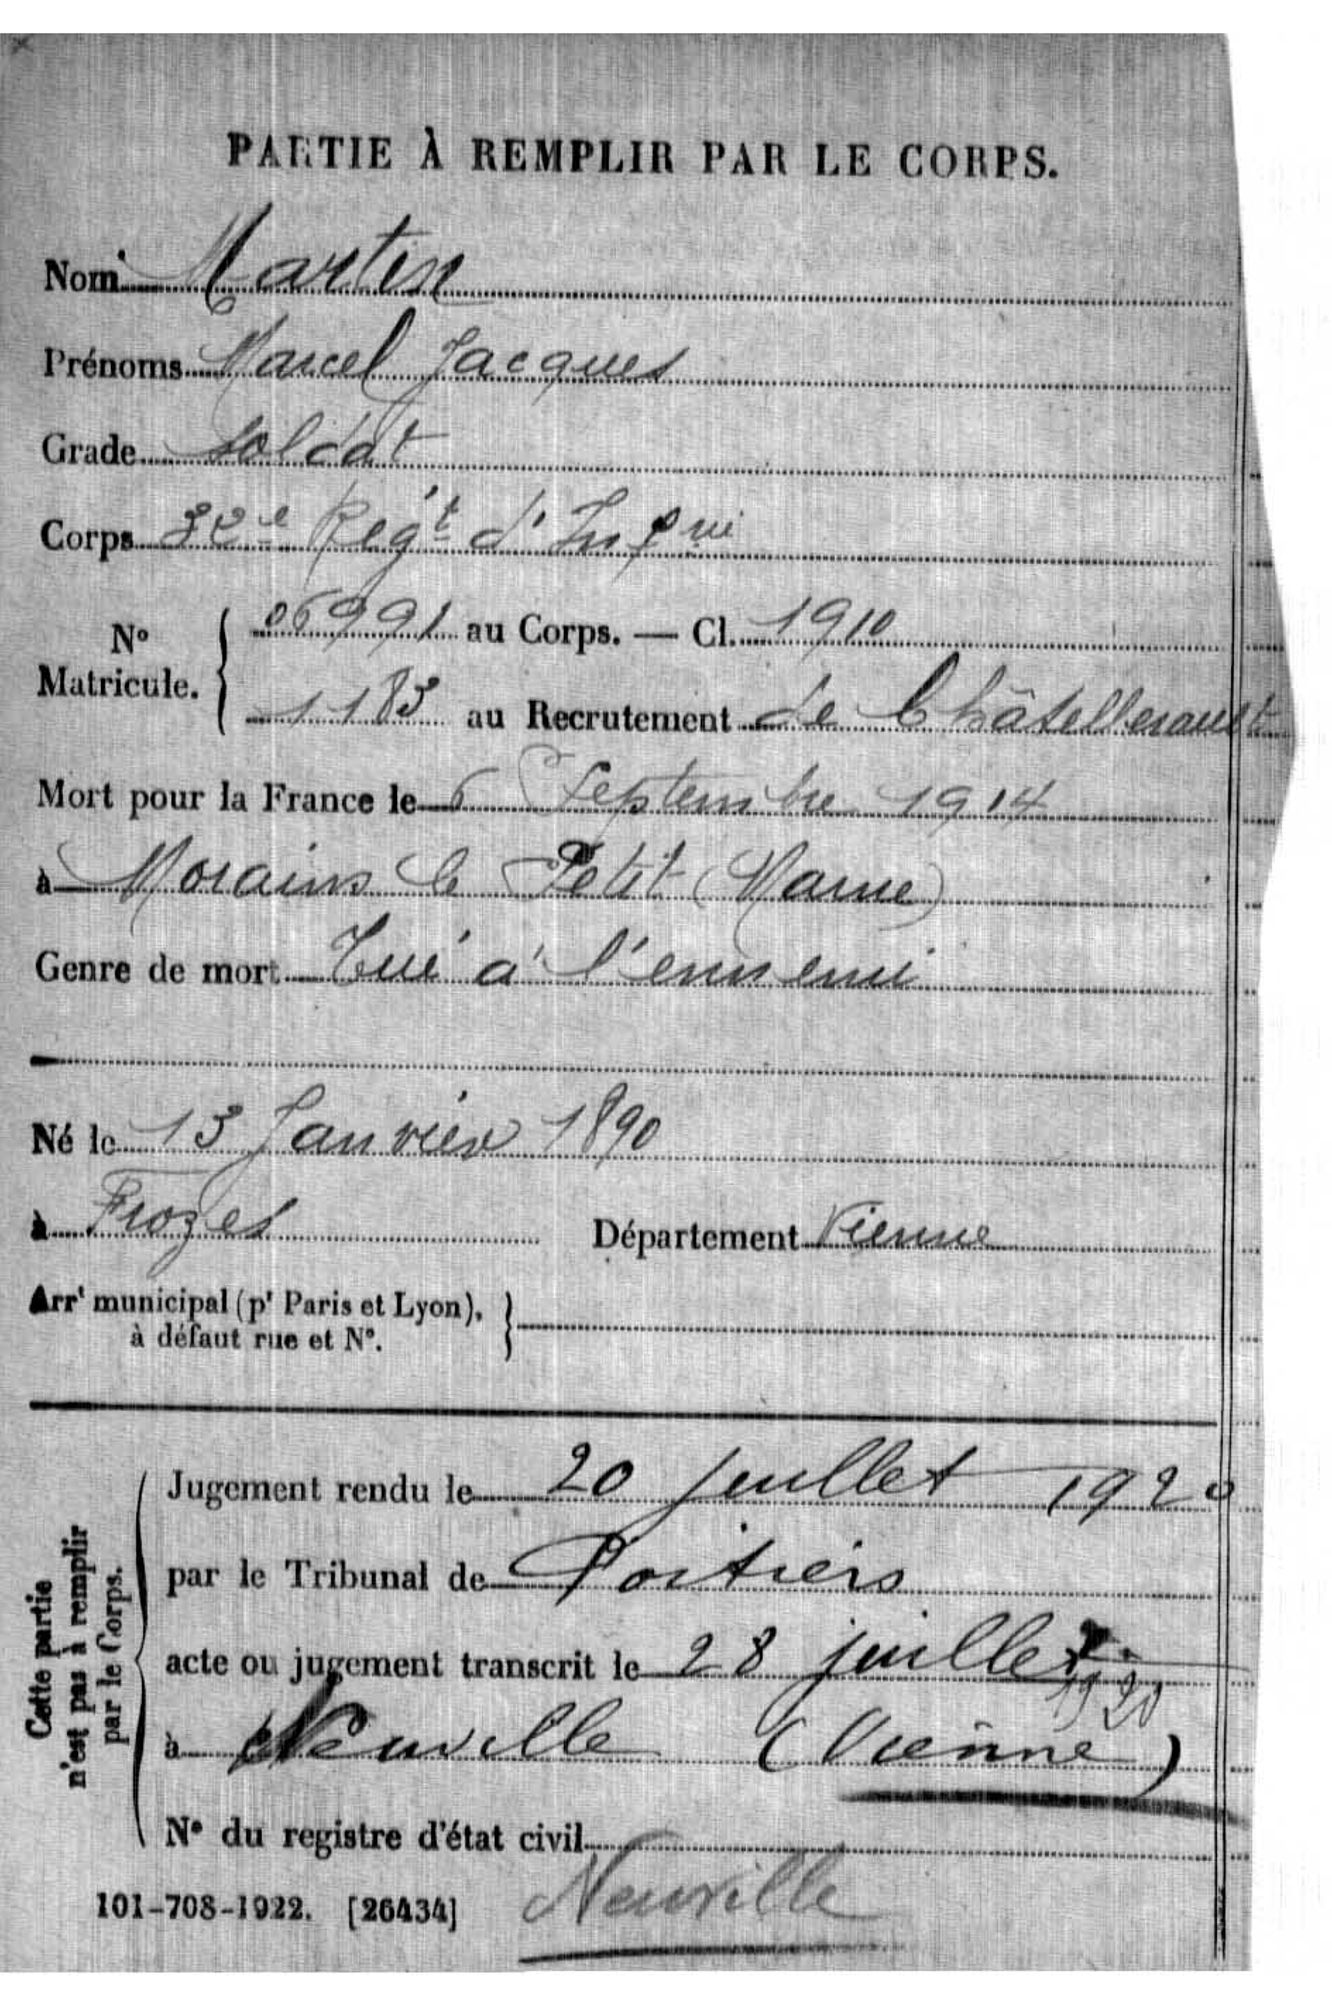 PARTIE À REMPLIR PAR LE CORPS.
Nom Martin
Prénoms Marcel Jacques
Grade Soldat
Corps 32e Régt d'Infrie
No Matricule. { 06991 au Corps. — Cl. 1910
1183 au Recrutement de Châtellerault
Mort pour la France le 6 Septembre 1914
à Morains le Petit (Marne)
Genre de mort Tué à l'ennemi
Né le 13 Janvier 1890
à Frozes Département Vienne
Arrt municipal (pr Paris et Lyon),
à défaut rue et No.
Cette partie n'est pas à remplir par le Corps.
Jugement rendu le 20 juillet 1920
par le Tribunal de Poitiers
acte ou jugement transcrit le 28 juillet 1920
à Neuville (Vienne)
No du registre d'état civil
Neuville
101-708-1922. [26434]